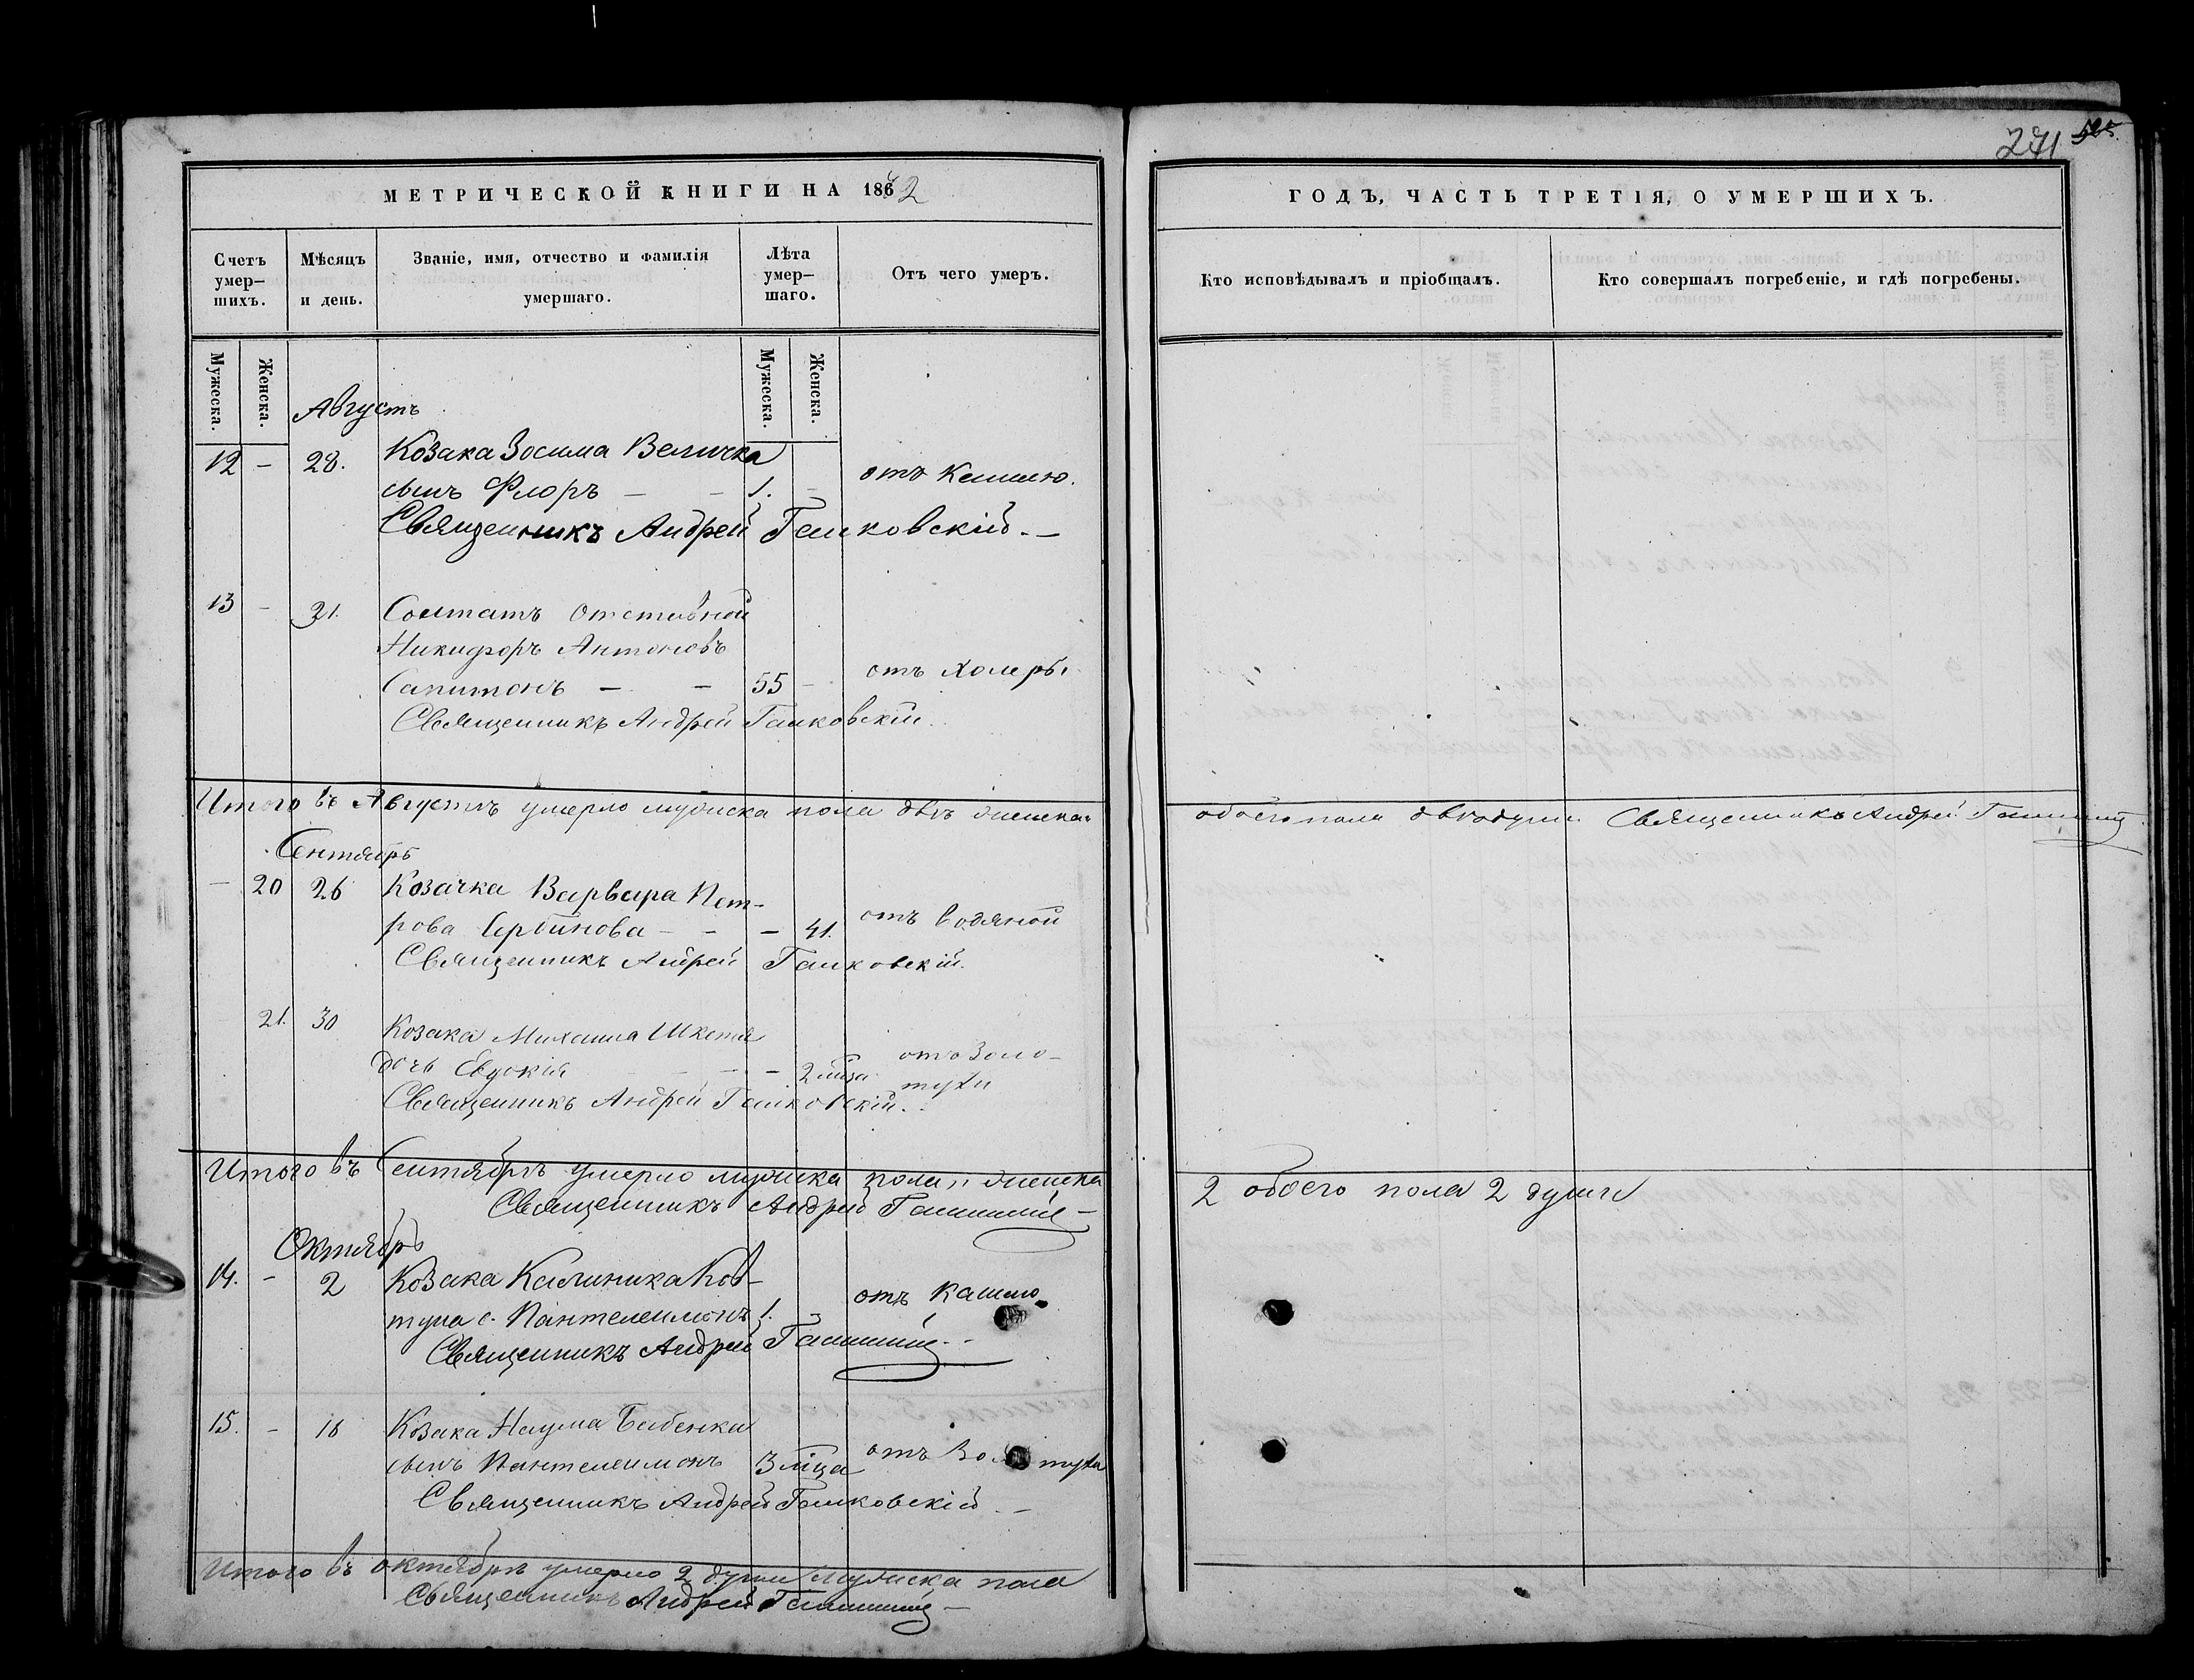 271
МЕТРИЧЕСКОЙ КНИГИ НА 1862
ГОДЪ, ЧАСТЬ ТРЕТІЯ, О УМЕРШИХЪ.
Счетъ умер-
шихъ.
Мѣсяцъ
и день.
Званіе, имя, отчество и фамилія
умершаго.
Лѣта
умер-
шаго.
Отъ чего умеръ.
Кто исповѣдывалъ и пріобщалъ.
Кто совершалъ погребеніе, и гдѣ погребены.
Мужеска.
Женска.
Мужеска.
Женска.
Августъ
12 – 28. Козака Зосима Величка
сынъ Флоръ – – 1. – отъ Кашлю.
Священникъ Андрей
13 – 31. Солтатъ Отставной
Никифоръ Антоновъ
Сапитонъ – – 55 – отъ Холеры
Священникъ Андрей
Итого въ Августѣ умерло мужеска пола двѣ женска „
обоего пола двѣ души Священникъ Андрей
Сентябрь
– 20 26 Козачка Варвара Пет-
рова Сербинова – – – 41. отъ водяной
Священникъ Андрей
21. 30 Козака Михаила
дочь Евдокія – 2 мца отъ Золо-
тухи
Священникъ Андрей
Итого въ Сентябрѣ умерло мужеска пола „ женска
2 обоего пола 2 души
Священникъ Андрей
Октябрь
14. – 2 Козака Калиника Ков-
туна с. Пантелеимонъ 1. – отъ Кашлю
Священникъ Андрей
15. – 18 Козака Наума Бабенка
сынъ Пантелеимонъ 3 мца отъ Золотухи
Священникъ Андрей
Итого въ октябрѣ умерло 2 души Мужеска пола
Священникъ Андрей